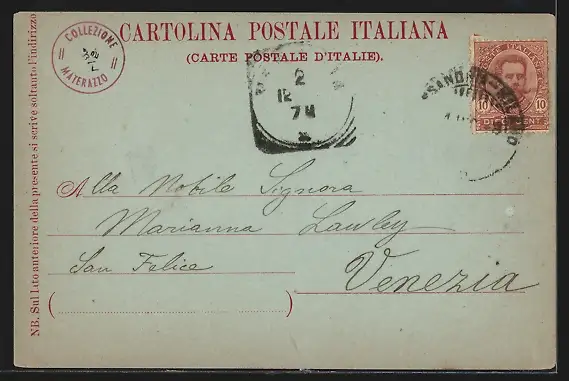 CARTOLINA POSTALE ITALIANA
(CARTE POSTALE D'ITALIE).
COLLEZIONE
MATERAZZO
2
12
7M
10 10
Alla Nobile Signora
Marianna Lawley
San Felice
Venezia
NB. Sul lato anteriore della presente si scrive soltanto l'indirizzo